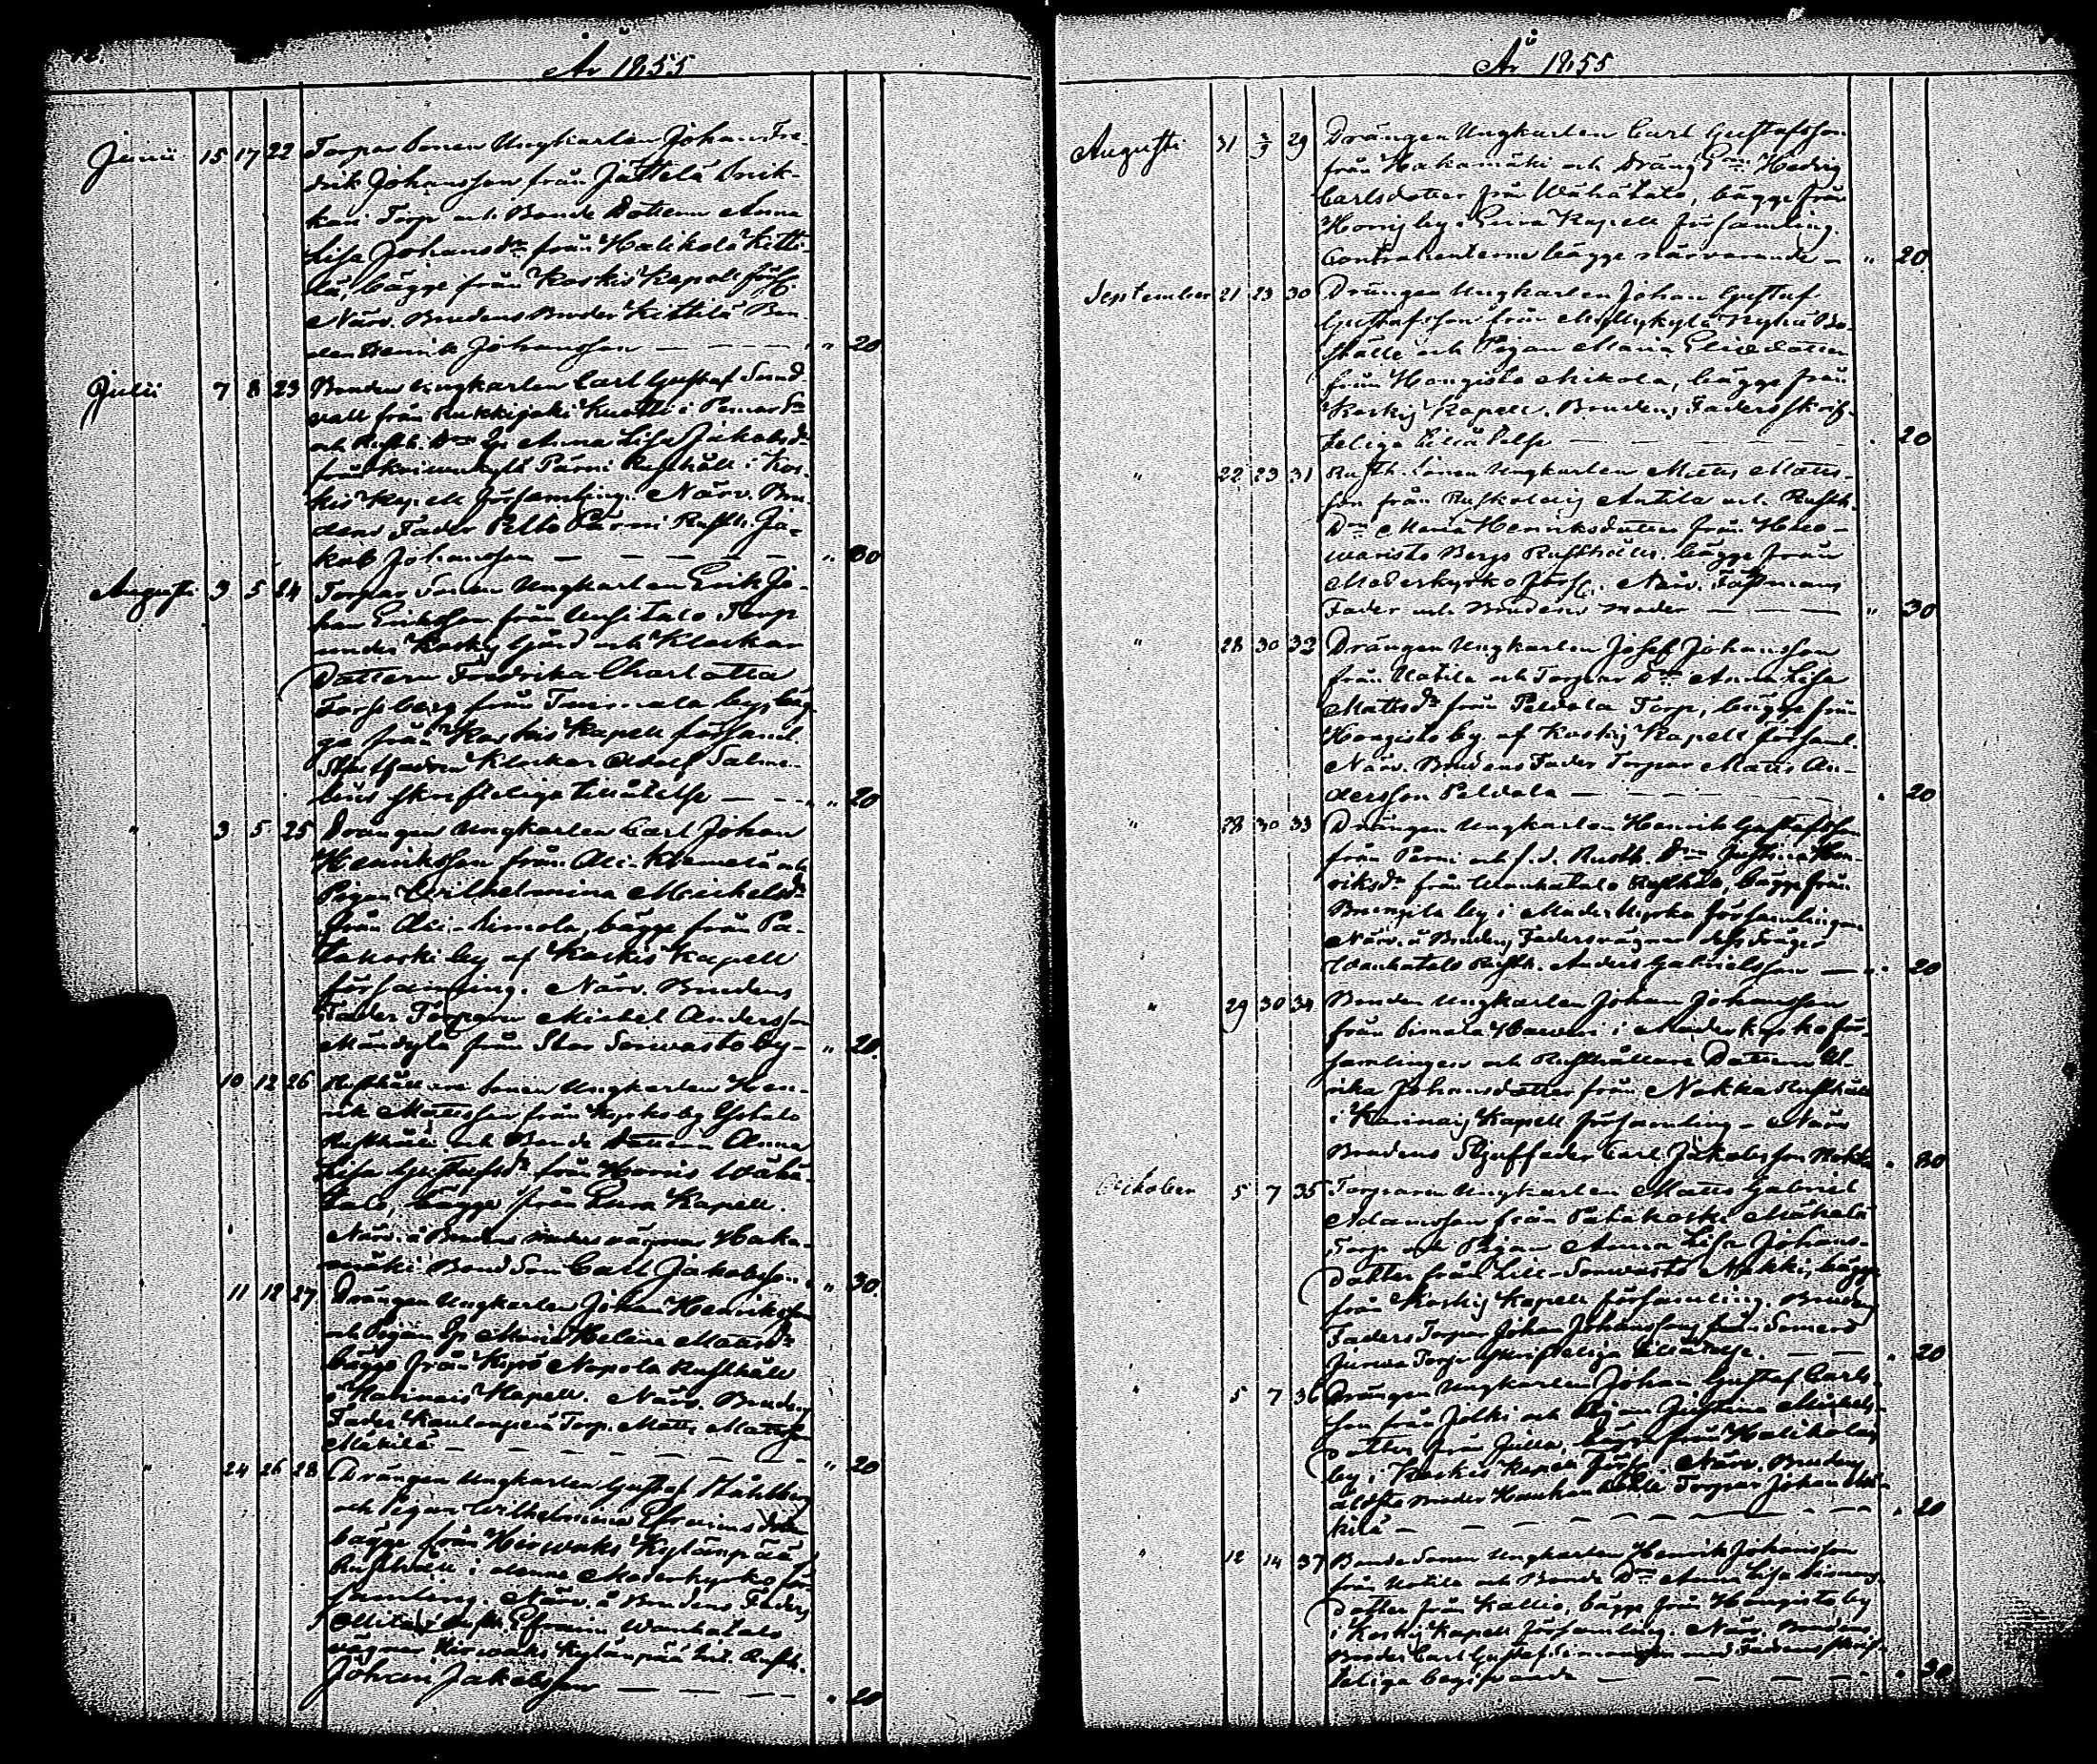 År 1855
Junii 15 17 22 Torpare sonen Ungkarlen Johan Fre-
drik Johansson från Jättelä
Torp och Bonde Dottern Anna
Lisa Johansdr från Halikola Kitti-
lä, bägge från Koskis Kapell förs.
Närv. Brudens Broder Kittilä Bon-
den Henrik Johansson — " 20
Julii 7 8 23 Bonden Ungkarlen Carl Gustaf Sund-
vall från Rukkijoki i Pemar Sn
och Rusth. Drn Anna Lisa Jakobsdr
från Pärni Rusthåll i Kos-
kis Kapell församling. Närv. Bru-
dens Fader Pello Pärni Rusth. Ja-
kob Johansson — " 30
Augusti 3 5 24 Torpar Sonen Ungkarlen Erik Jo-
han Eriksson från Uusitalo Torp
under Koskis Gård och Klockar
Dottern Fredrika Charlotta
Forsberg från by, bäg-
ge från Koskis Kapell församl.
Klockar Adolf Salme-
lius skriftelige tillåtelse — " 20
" 3 5 25 Drängen Ungkarlen Carl Johan
Henriksson från Ali-Klemelä och
Pigan Wilhelmina Michelsdr
från Ali-Simola, bägge från Pa-
takoski by af Koskis Kapell
församling. Närv. Brudens
Fader Torparen Michel Andersson
Mändylä från Stor Sorvasto by — " 20
10 12 26 Rusthållare sonen Ungkarlen Hen-
rik Mattsson från by Ylitalo
Rusthåll och Bonde Dottern Anna
Lisa Gustafsdr från Horris Wähä-
talo, bägge från Eura Kapell.
Närv. å Brudens vägnar Haka-
mäki Bond Son Carl Jakobsson " 30
11 12 27 Drängen Ungkarlen Johan Henriksson
och Pigan Maria Helena Mattsdr
bägge från Kyrö Nopola Rusthåll
i Karinais Kapell. Närv. Brudens
Fader Torp. Matts Mattsson
Mäkilä — " 20
" 24 26 28 Drängen Ungkarlen Gustaf Ståhlberg
och Pigan Wilhelmina Efraims dotter
bägge från Hirwaks Kylänpää
Rusthåll i denne Moderkyrko för-
samling. Närv. å Brudens Faders
Efraim Wanhatalo
vägnar Hirwaks Kylänpää Rusth.
Johan Jakobsson — " 20
År 1855
Augusti 31 2/9 29 Drängen Ungkarlen Carl Gustafsson
från Hakamäki och Dräng Drn Hedvig
Carlsdotter från Wähätalo, bägge från
Horris by i Eura Kapell församling.
Contrahenterne bägge närvarande — " 20
September 21 23 30 Drängen Ungkarlen Johan Gustaf
Gustafsson från Bo-
ställe och Pigan Maria dotter
från Hongisto Mikola, bägge från
Koskis Kapell. Brudens Faders skrif-
teliga tillåtelse — " 20
" 22 23 31 Rusth. Sonen Ungkarlen Matts Matts-
son från Antila och Rusth.
Drn Maria Henriksdotter från
Bergs Rusthåll, bägge från
Moderkyrko förs. Närv. Fästmans
Fader och Brudens moder — " 30
" 28 30 32 Drängen Ungkarlen Josef Johansson
från Uotila och Torpar Drn Anna Lisa
Mattsdr från Peldola Torp, bägge från
Hongisto by af Koskis Kapell församl.
Närv. Brudens Fader Torpar Matts An-
dersson Peldola — " 20
" 28 30 33 Drängen Ungkarlen Henrik Gustafsson
från Pärni och f.d. Rusth. Drn Justina Hen-
riksdr från Wanhatalo Rusthåll, bägge från
by i Moderkyrko församlingen.
Närv. å Brudens Faders vägnar
Wanhatalo Rusth. Anders Gabrielsson — " 20
" 29 30 34 Bonden Ungkarlen Johan Johansson
från i Moderkyrko för-
samlingen och Rusthållare Dottern Ul-
rika Johansdotter från Nokka Rusthåll
i Karinais Kapell församling — Närv.
Brudens Stjuffader Carl Jakobsson Nokka " 30
October 5 7 35 Torparen Ungkarlen Matts Gabriel
Adamsson från Patakoski Mäkelä
Torp och Pigan Anna Lisa Johans-
dotter från Lill-Sorvasto Mäkki, bägge
från Koskis Kapell församling. Brudens
Faders Torpar Johan Johanssons från Somero
Torp skrifteliga tillåtelse. — " 20
" 5 7 36 Drängen Ungkarlen Johan Gustaf Carls-
son från Jolki och Pigan Justina Michels-
dotter från Julla, bägge från Halikola
by i Koskis Kapell förs. Närv. Brudens
äldste Broder Torpar Johan Mä-
kilä — " 20
" 12 14 37 Bonde Sonen Ungkarlen Henrik Johansson
från Uotila och Bonde Drn Anna Lisa Simons-
dotter från Kallio, bägge från Hongisto by
i Koskis Kapell församling. Närv. Brudens
Broder Carl Gustaf Simonsson med Fadrens skrif-
teliga begifvande — " 30